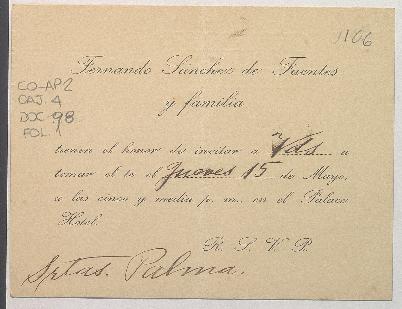 1106
Fernando Sánchez de Fuentes
y familia
CO-AP2
CAJ. 4
DOC 98
FOL. 1
tienen el honor de invitar a Vds a
tomar el te el Jueves 15 de Mayo,
a las cinco y media p. m. en el Palace
Hotel.
R. S. V. P.
Srtas. Palma.